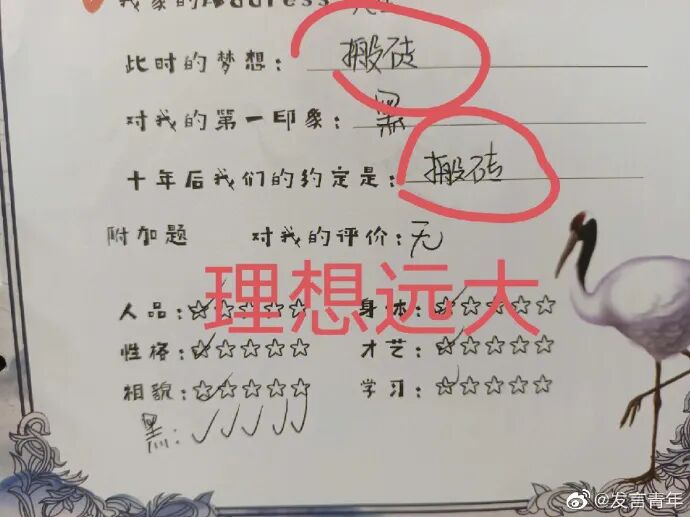 我家的Address
此时的梦想：搬砖
对我的第一印象：黑
十年后我们的约定是：搬砖
附加题 对我的评价：无
理想远大
人品：☆☆☆☆☆ 身体：☆☆☆☆☆
性格：☆☆☆☆☆ 才艺：☆☆☆☆☆
相貌：☆☆☆☆☆ 学习：☆☆☆☆☆
黑：✓✓✓✓✓
@发言青年